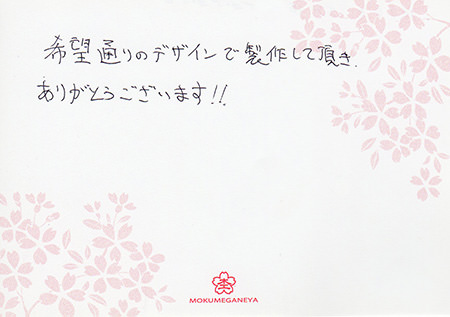 希望通りのデザインで製作して頂き
ありがとうございます!!
MOKUMEGANEYA